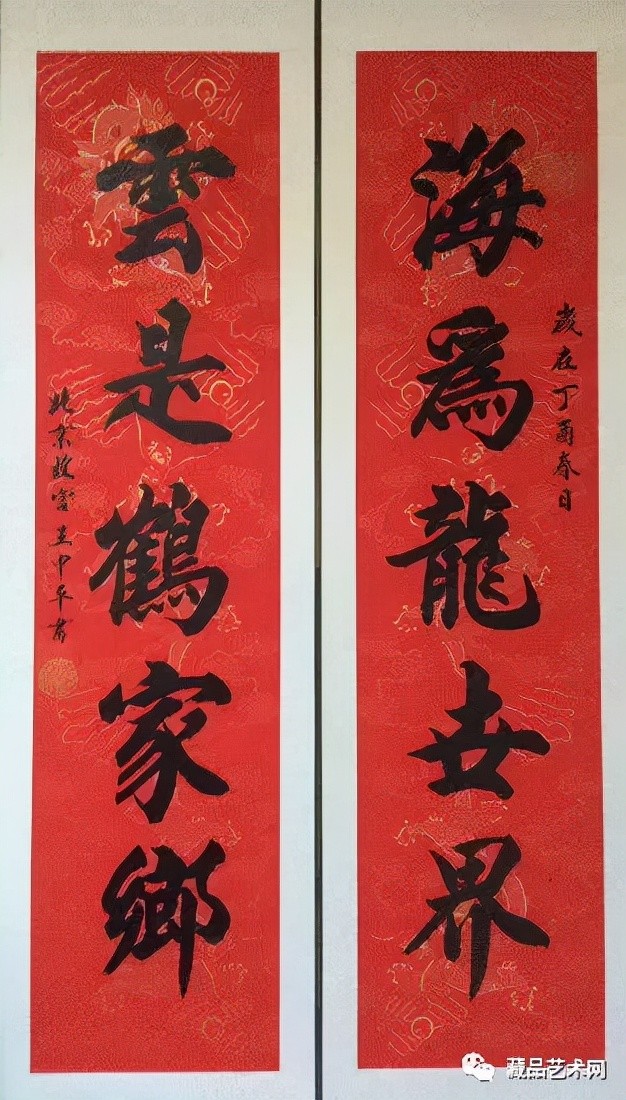 歲在丁酉春日
海爲龍世界
雲是鶴家鄉
北京故宮中平書
藏品艺术网